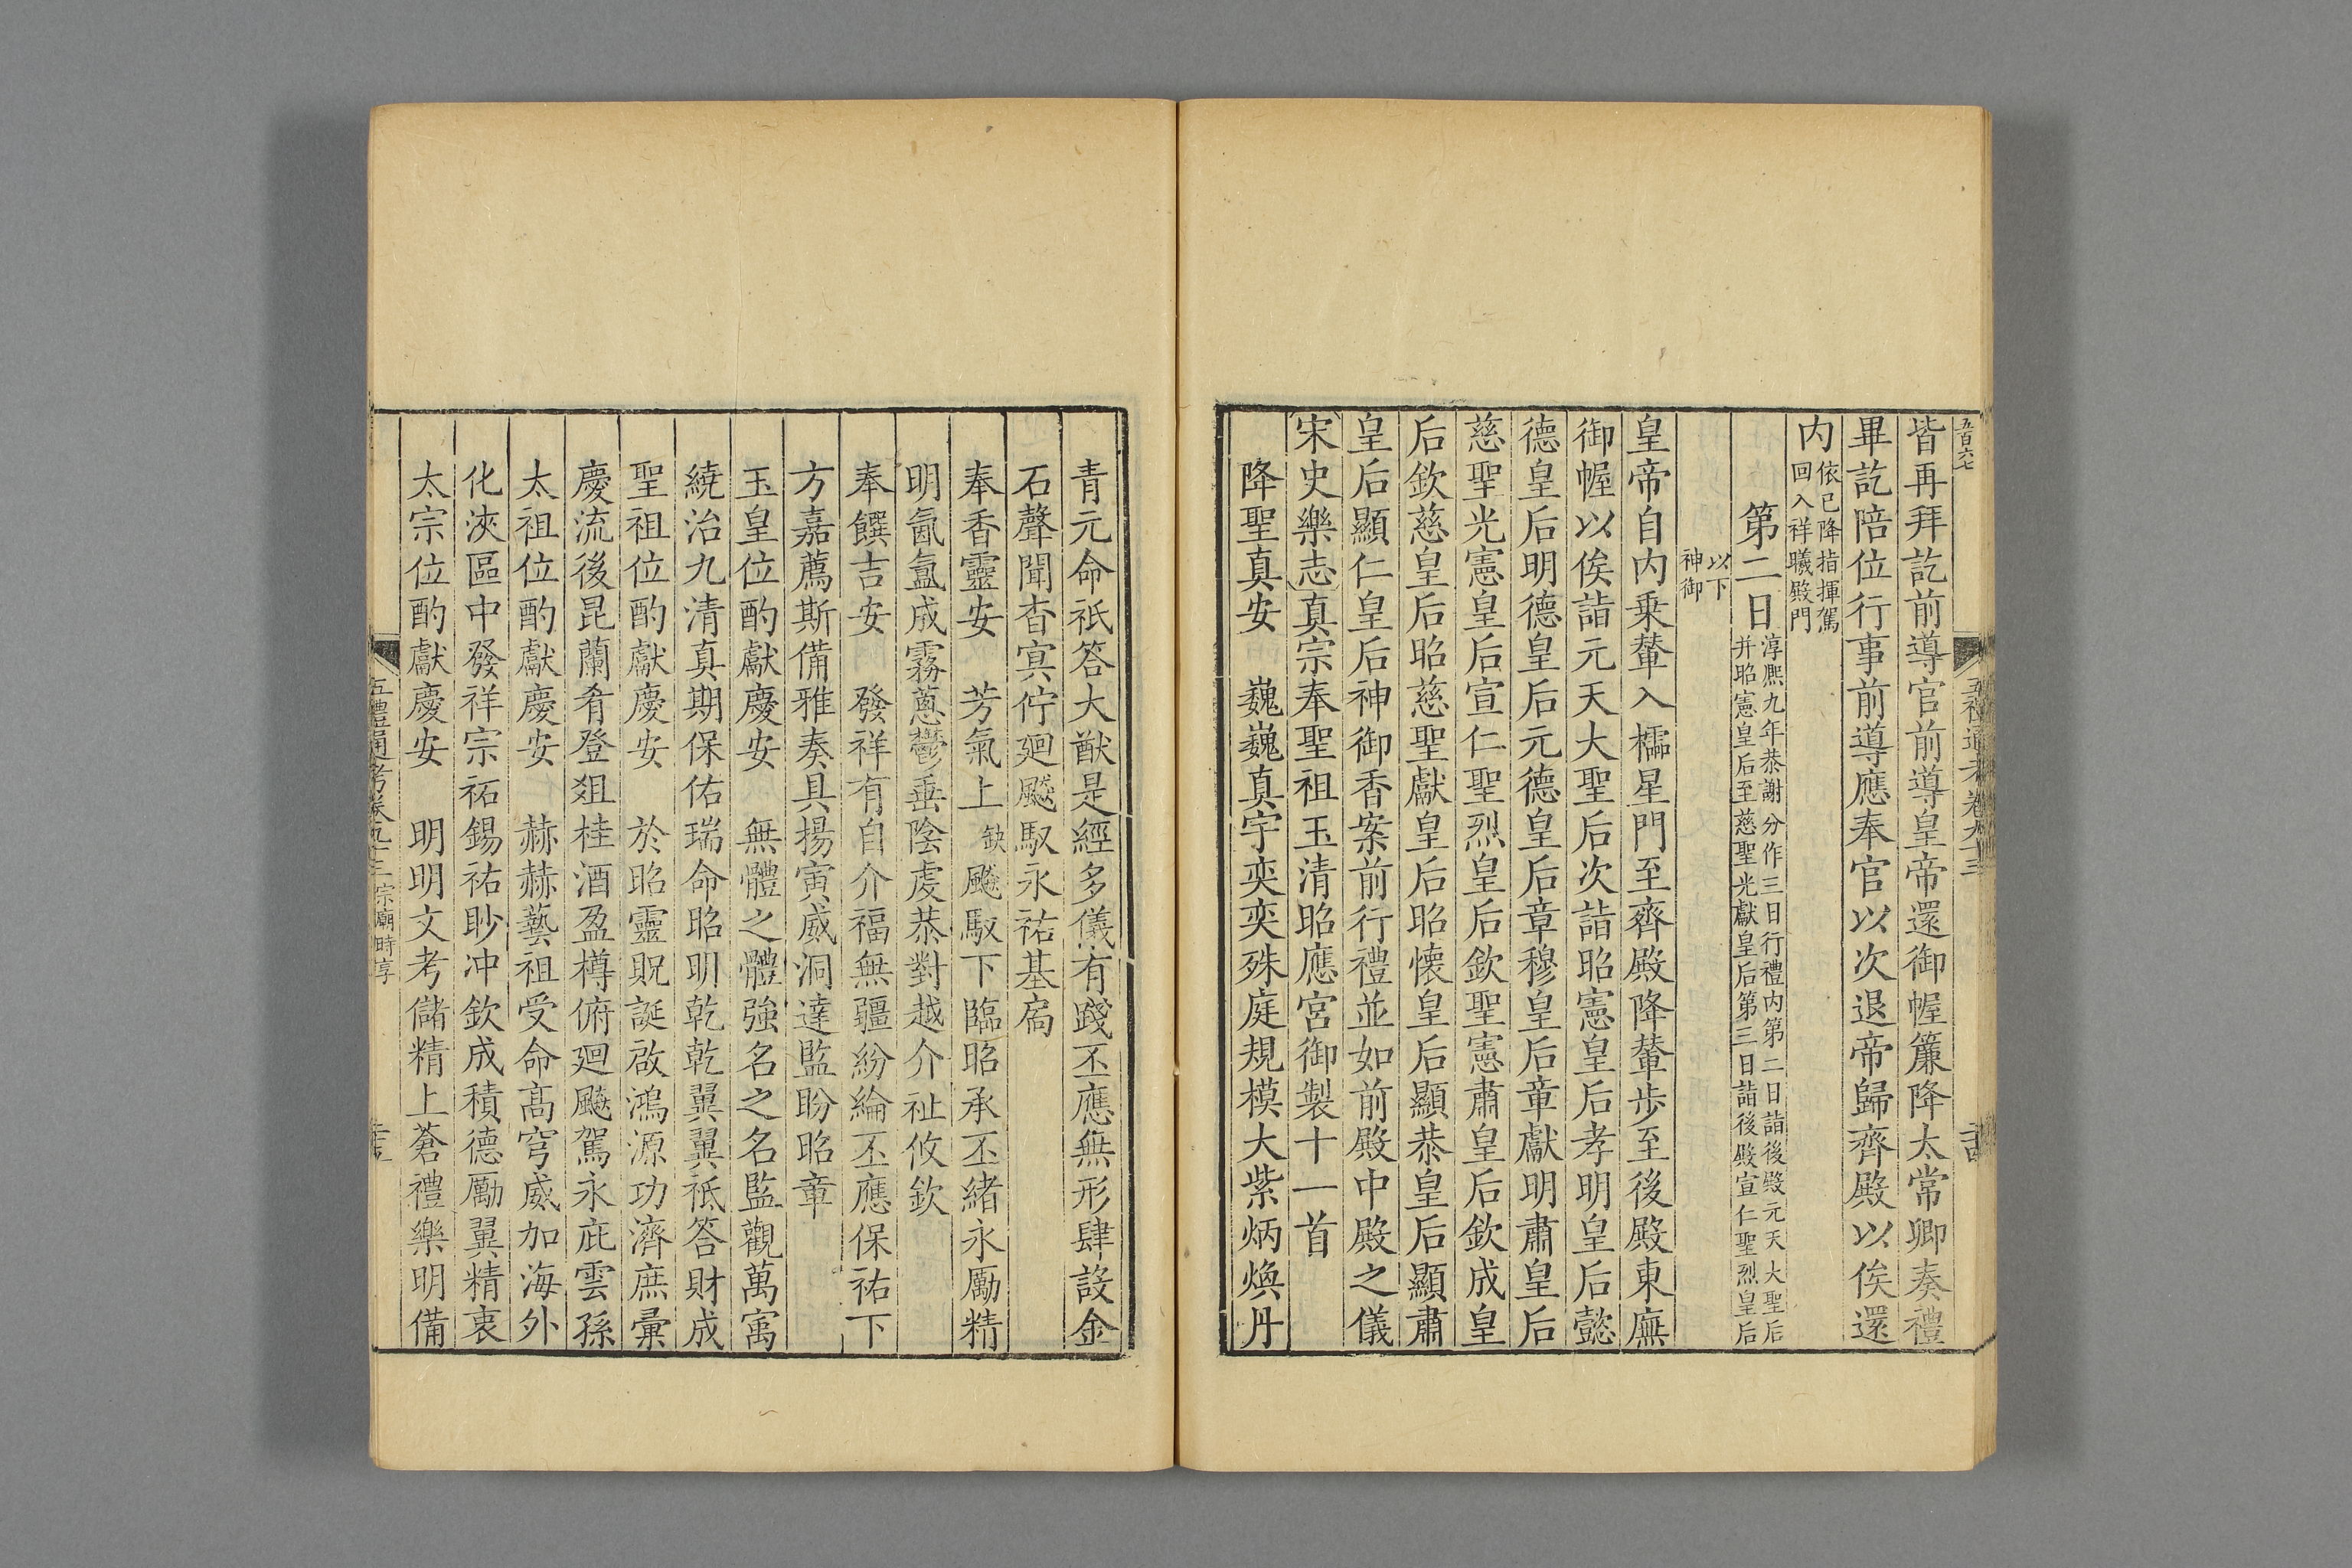 五百六七
皆再拜訖前導官前導皇帝還御幄簾降太常卿奏禮
畢訖陪位行事前導應奉官以次退帝歸齊殿以俟還
内依已降指揮駕
回入祥曦殿門
第二日淳熈九年恭謝分作三日行禮内第二日詣後殿元天大聖后
并昭憲皇后至慈聖光獻皇后第三日詣後殿宣仁聖烈皇后
以下
神御
皇帝自内乗輦入櫺星門至齊殿降輦歩至後殿東廡
御幄以俟詣元天大聖后次詣昭憲皇后孝明皇后懿
德皇后明德皇后元德皇后章穆皇后章獻明肅皇后
慈聖光憲皇后宣仁聖烈皇后欽聖憲肅皇后欽成皇
后欽慈皇后昭慈聖獻皇后昭懐皇后顯恭皇后顯肅
皇后顯仁皇后神御香案前行禮並如前殿中殿之儀
宋史樂志真宗奉聖祖玉清昭應宮御製十一首
降聖真安　巍巍真宇奕奕殊庭規模大紫炳煥丹
青元命祇答大猷是經多儀有踐丕應無形肆設金
石聲聞杳㝠佇廻飈馭永祐基扃
奉香靈安　芳氣上缺飈馭下臨昭承丕緒永厲精
明氤氲成霧蔥鬱垂陰虔恭對越介祉攸欽
奉饌吉安　發祥有自介福無疆紛綸丕應保祐下
方嘉薦斯備雅奏具揚寅威洞達監盼昭章
玉皇位酌獻慶安　無體之體強名之名監觀萬㝢
繞治九清真期保佑瑞命昭明乾乾翼翼祇答財成
聖祖位酌獻慶安　於昭靈貺誕啟鴻源功濟庶彚
慶流後昆蘭肴登爼桂酒盈樽俯廻飈駕永庇雲孫
太祖位酌獻慶安　赫赫藝祖受命髙穹威加海外
化浹區中發祥宗祏錫祐眇冲欽成積德厲翼精衷
太宗位酌獻慶安　明明文考儲精上蒼禮樂明備
五禮通考卷九十三宗廟時享